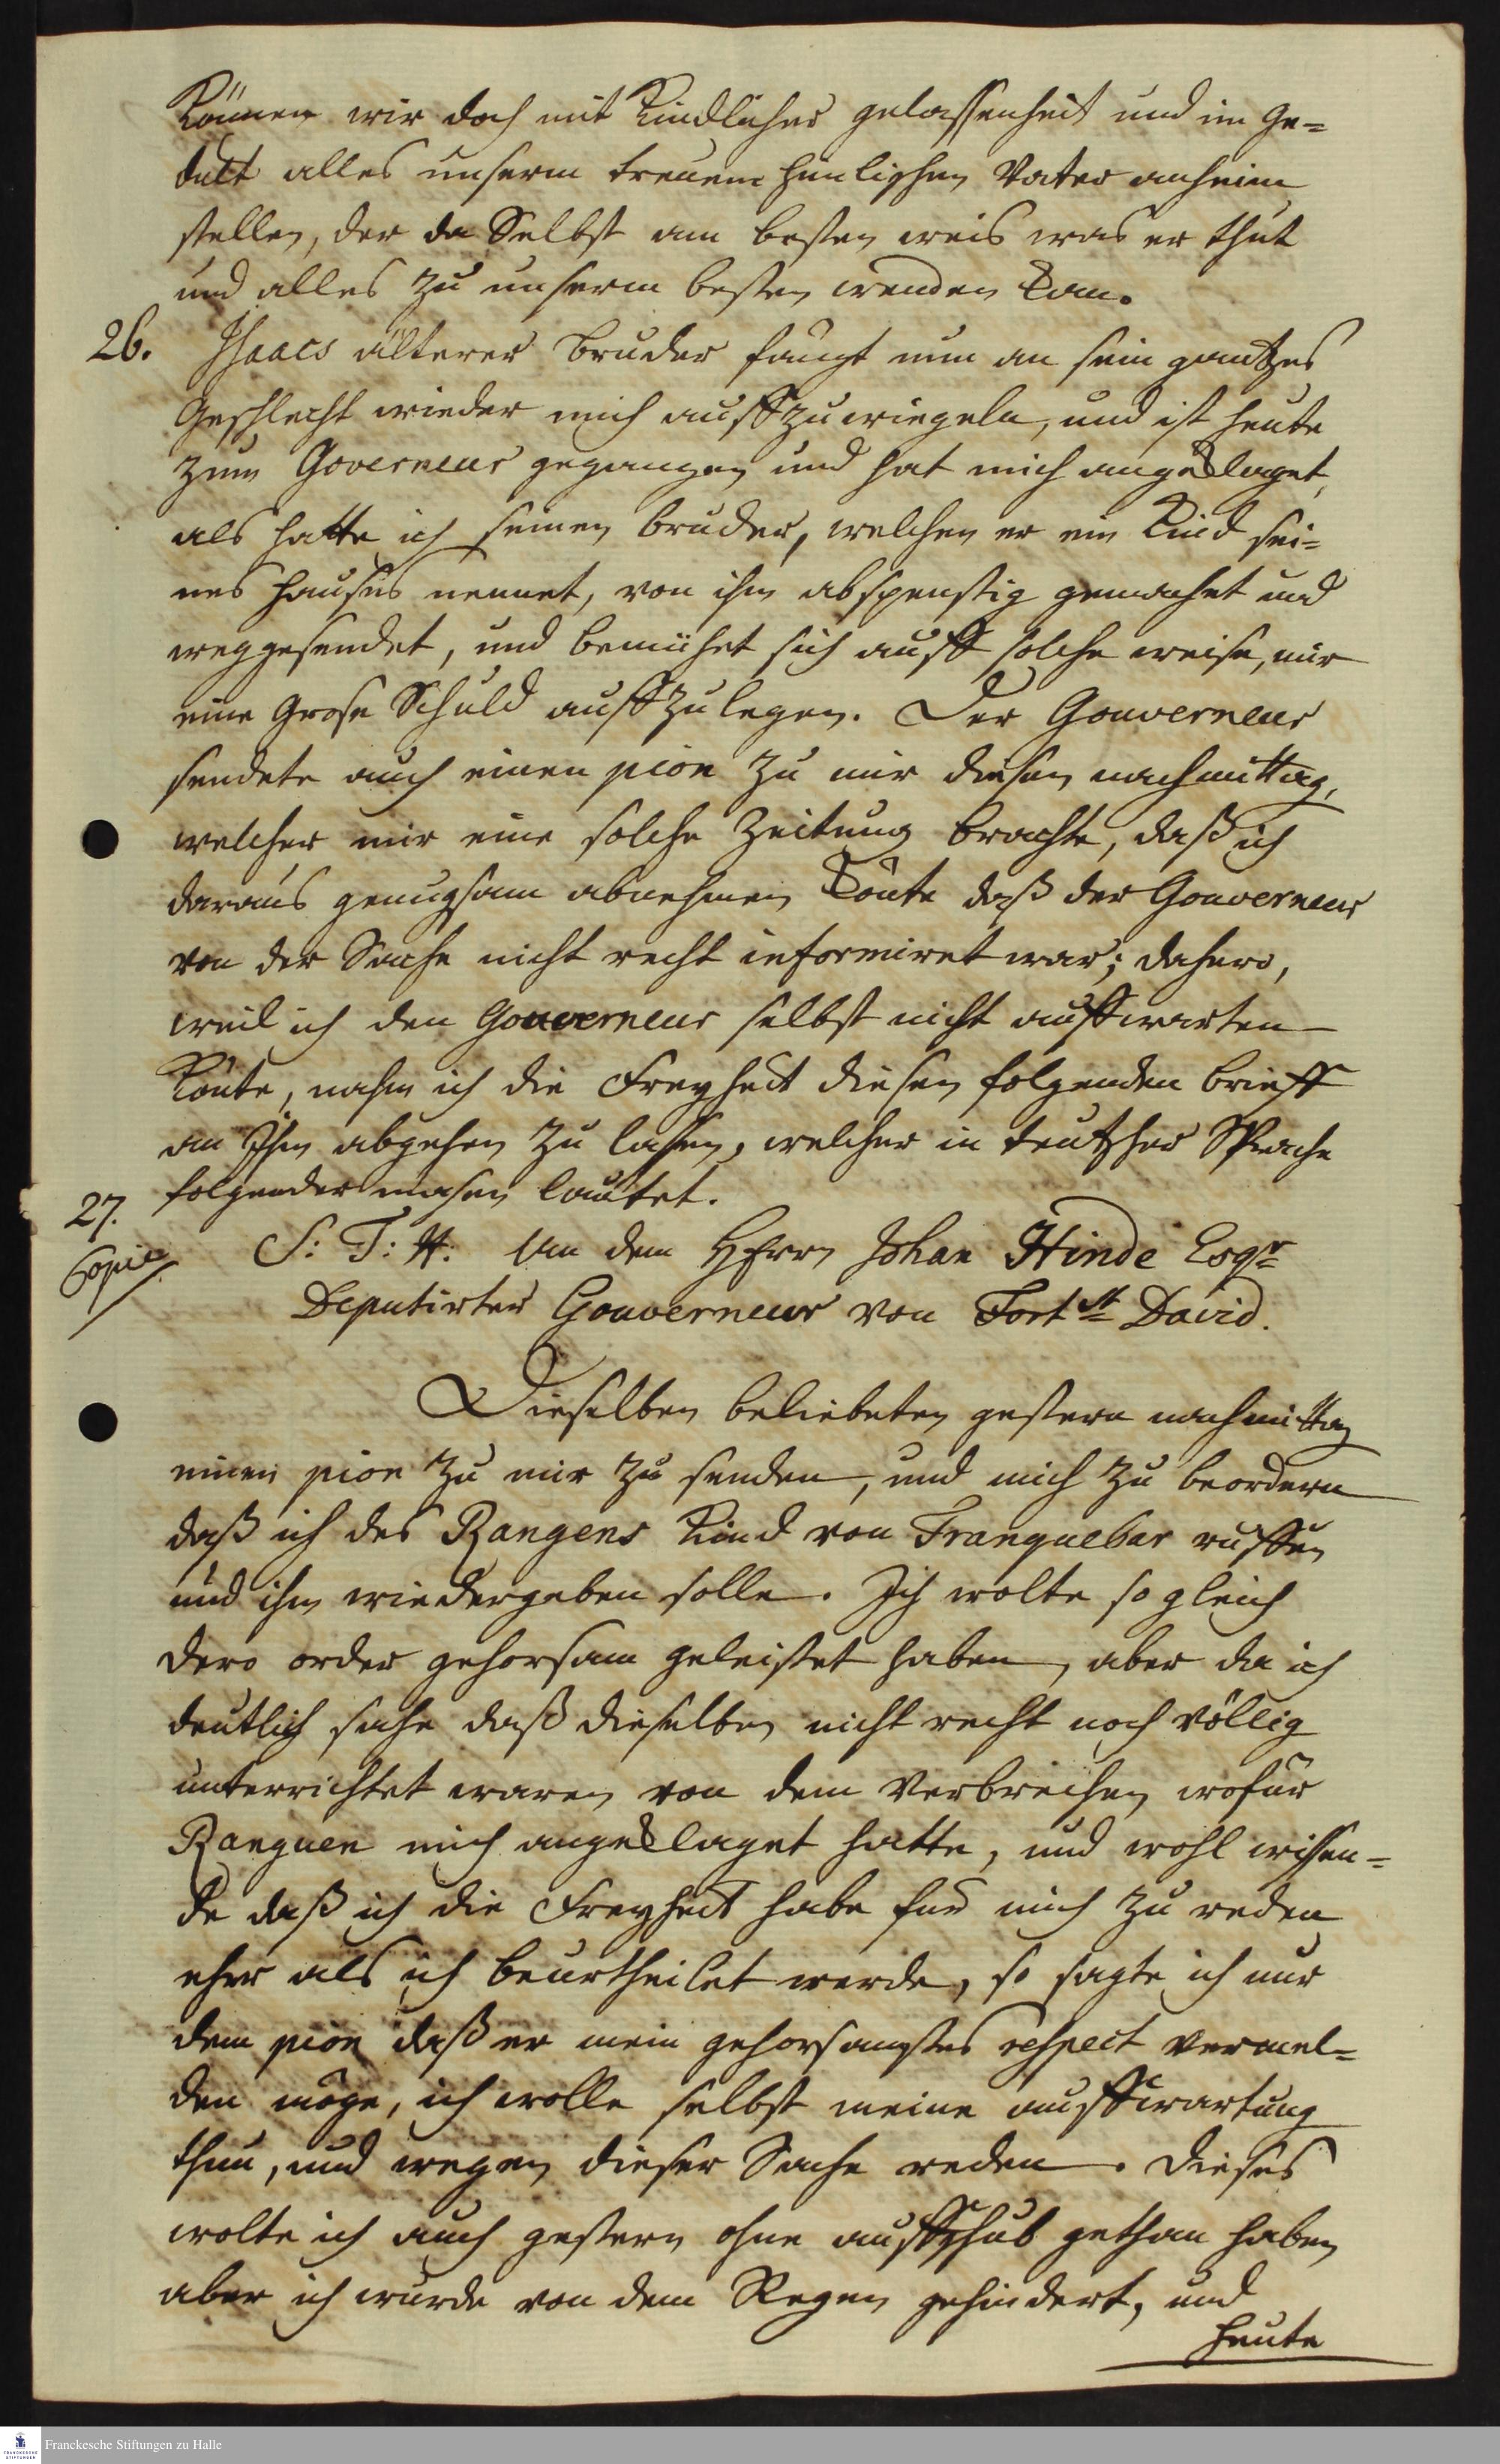 können wir doch mit kindlicher gelassenheit und in Ge=
dult alles unserm treuem himlischen Vater anheim
stellen, der da Selbst am besten weis was er thut
und alles zu unserm besten wenden kan.
26. Isaacs älterer bruder fängt nun an sein gantzes
Geschlecht wieder mich auffzuwiegeln, und ist heute
zum Governeur gegangen und hat mich angeklaget,
als hätte ich seinen bruder, welchen er ein Kind sei=
nes hauses nennet, von ihm abspenstig gemachet und
weggesendet, und bemühet sich auff solche weise, mir
eine Grose Schuld auffzulegen. Der Gouverneur
sendete auch einen pion zu mir diesen nachmittag,
welcher mir eine solche Zeitung brachte, daß ich
daraus genugsam abnehmen konte daß der Gouverneur
von der Sache nicht recht informiret war; dahero,
weil ich den Gouverneur selbst nicht auffwarten
konte, nahm ich die Freyheit diesen folgenden brieff
an Ihm abgehen zu lassen, welcher in teutscher Sprache
folgendermasen lautet.
27.
Copie
S: T: H: An dem Herrn Johan Hinde Esqr
Deputirter Gouverneur von Fort St David.
Dieselben beliebeten gestern nachmittag
einen pion zu mir zu senden, und mich zu beordern
daß ich des Rangens Kind von Tranquebar ruffen
und ihm wiedergeben solle. Ich wolte so gleich
dero order gehorsam geleistet haben, aber da ich
deutlich sahe daß dieselben nicht recht noch völlig
unterrichtet waren von dem Verbrechen wofür
Ranguen mich angeklaget hatte, und wohl wissen=
de daß ich die Freyheit habe für mich zu reden
eher als ich beurtheilet werde, so sagte ich nur
dem pion daß er mein gehorsamstes respect vermel=
den möge, ich wolle selbst meine auffwartung
thun, und wegen dieser Sache reden. Dieses
wolte ich auch gestern ohne auffschub gethan haben
aber ich wurde von dem Regen gehindert, und
heute
Franckesche Stiftungen zu Halle